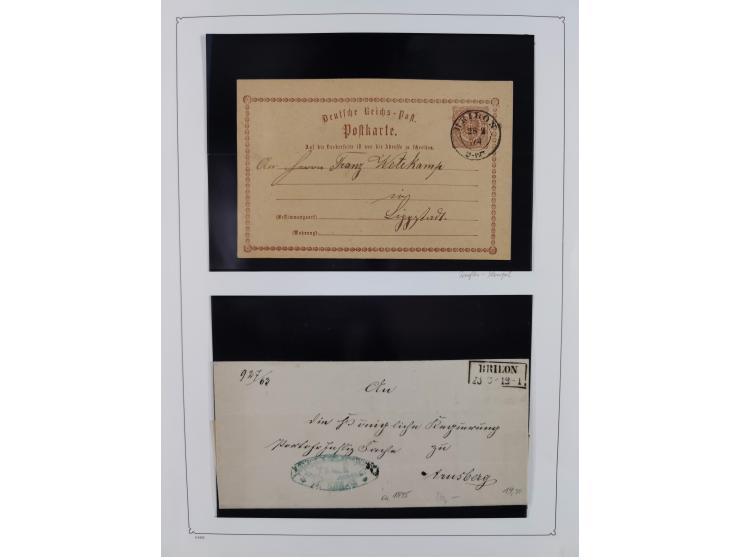 Deutsche Reichs-Post.
Postkarte.
Auf die Vorderseite ist nur die Adresse zu schreiben.
BRILON
28 2
74
An Herrn Franz Kotekamp
in
(Bestimmungsort) Lippstadt.
(Wohnung)
927/62
BRILON
12-1
An
die Königliche Regierung
Portopflichtige Sache zu
Arnsberg
ca 1855